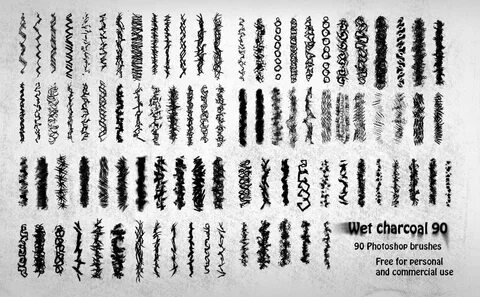 Wet charcoal 90
90 Photoshop brushes
Free for personal
and commercial use